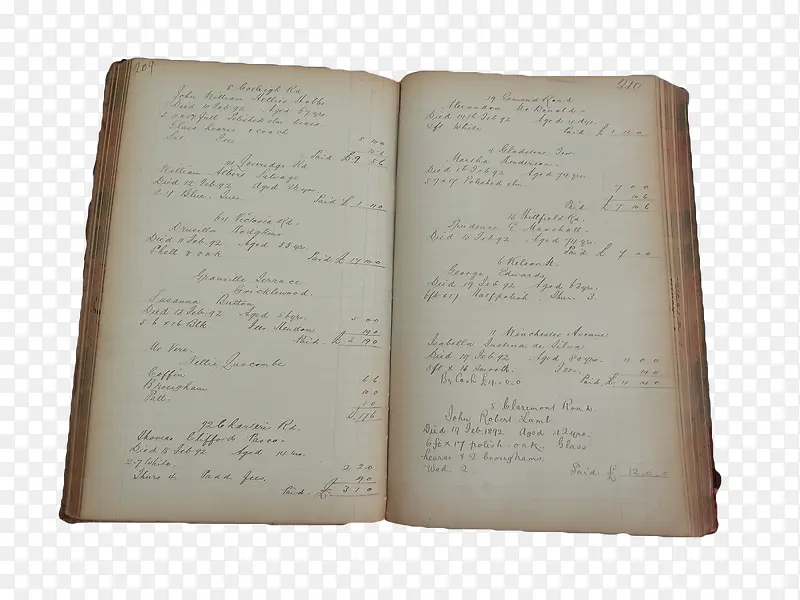 209
8 Corleigh Rd
John William Hollis Hobbs
Died 10 Feb 92 Aged 67 yrs
full Polished elm
Glass hearse & coach
Fees
Paid £ 9 5 6
14 Loveridge Rd
William Albert Salvage
Died 12 Feb 92 Aged
Blue. Fees. Paid £ 1 11 0
64 Victoria Rd.
Drusilla Hodgkins
Died 11 Feb. 92 Aged 25 yrs
Shell & oak Paid £ 17 10 0
Granville Terrace
Cricklewood.
Susanna Button
Died 12 Feb. 92 Aged 5 yrs. 5 0 0
5 6 x 16 Blk Fees Hendon 19 0
Paid. £ 5 19 0
Mr Vere.
Nellie Luscombe
Coffin 6 6
Brougham 10 0
Pall. 1 0
£ 17 6
92 Charteris Rd.
Thomas Clifford
Died 15 Feb 92 Aged
2.7 White. 2 2 0
Thurs 4. Padd fees. 9 0
Paid. £ 3 1 0
210
19 Esmond Road
Alexandra McDonald
Died 14th Feb 92 Aged 11 days.
White Paid £ 1 11 0
4 Gladstone Ter.
Marsha Henderson
Died 16 Feb 92 Aged 74 yrs
5 9 x 17 Polished elm. 7 0 0
10 6
Paid. £ 7 10 6
12 Hatfield Rd.
Prudence E Marshall.
Died 15 Feb 92 Aged 74 yrs.
Paid £ 7 0 0
6 Nelson St
George Edwards
Died 19 Feb 92 Aged 62 yrs.
6ft x 17 Half polish. Thur. 3.
11 Winchester Avenue
Isabella Justina de Silva
Died 17 Feb 92 Aged 80 yrs. 0 0
5ft x 16 smooth. Fees.
By Cash £4.0.0 Paid £ 4 14 0
5 Claremont Road.
John Robert Lamb
Died 17 Feb. 1892 Aged 42 yrs.
6 ft x 17 polish. oak. Glass
hearse & 2 broughams.
Wed. 2. Paid £ 12.0.0